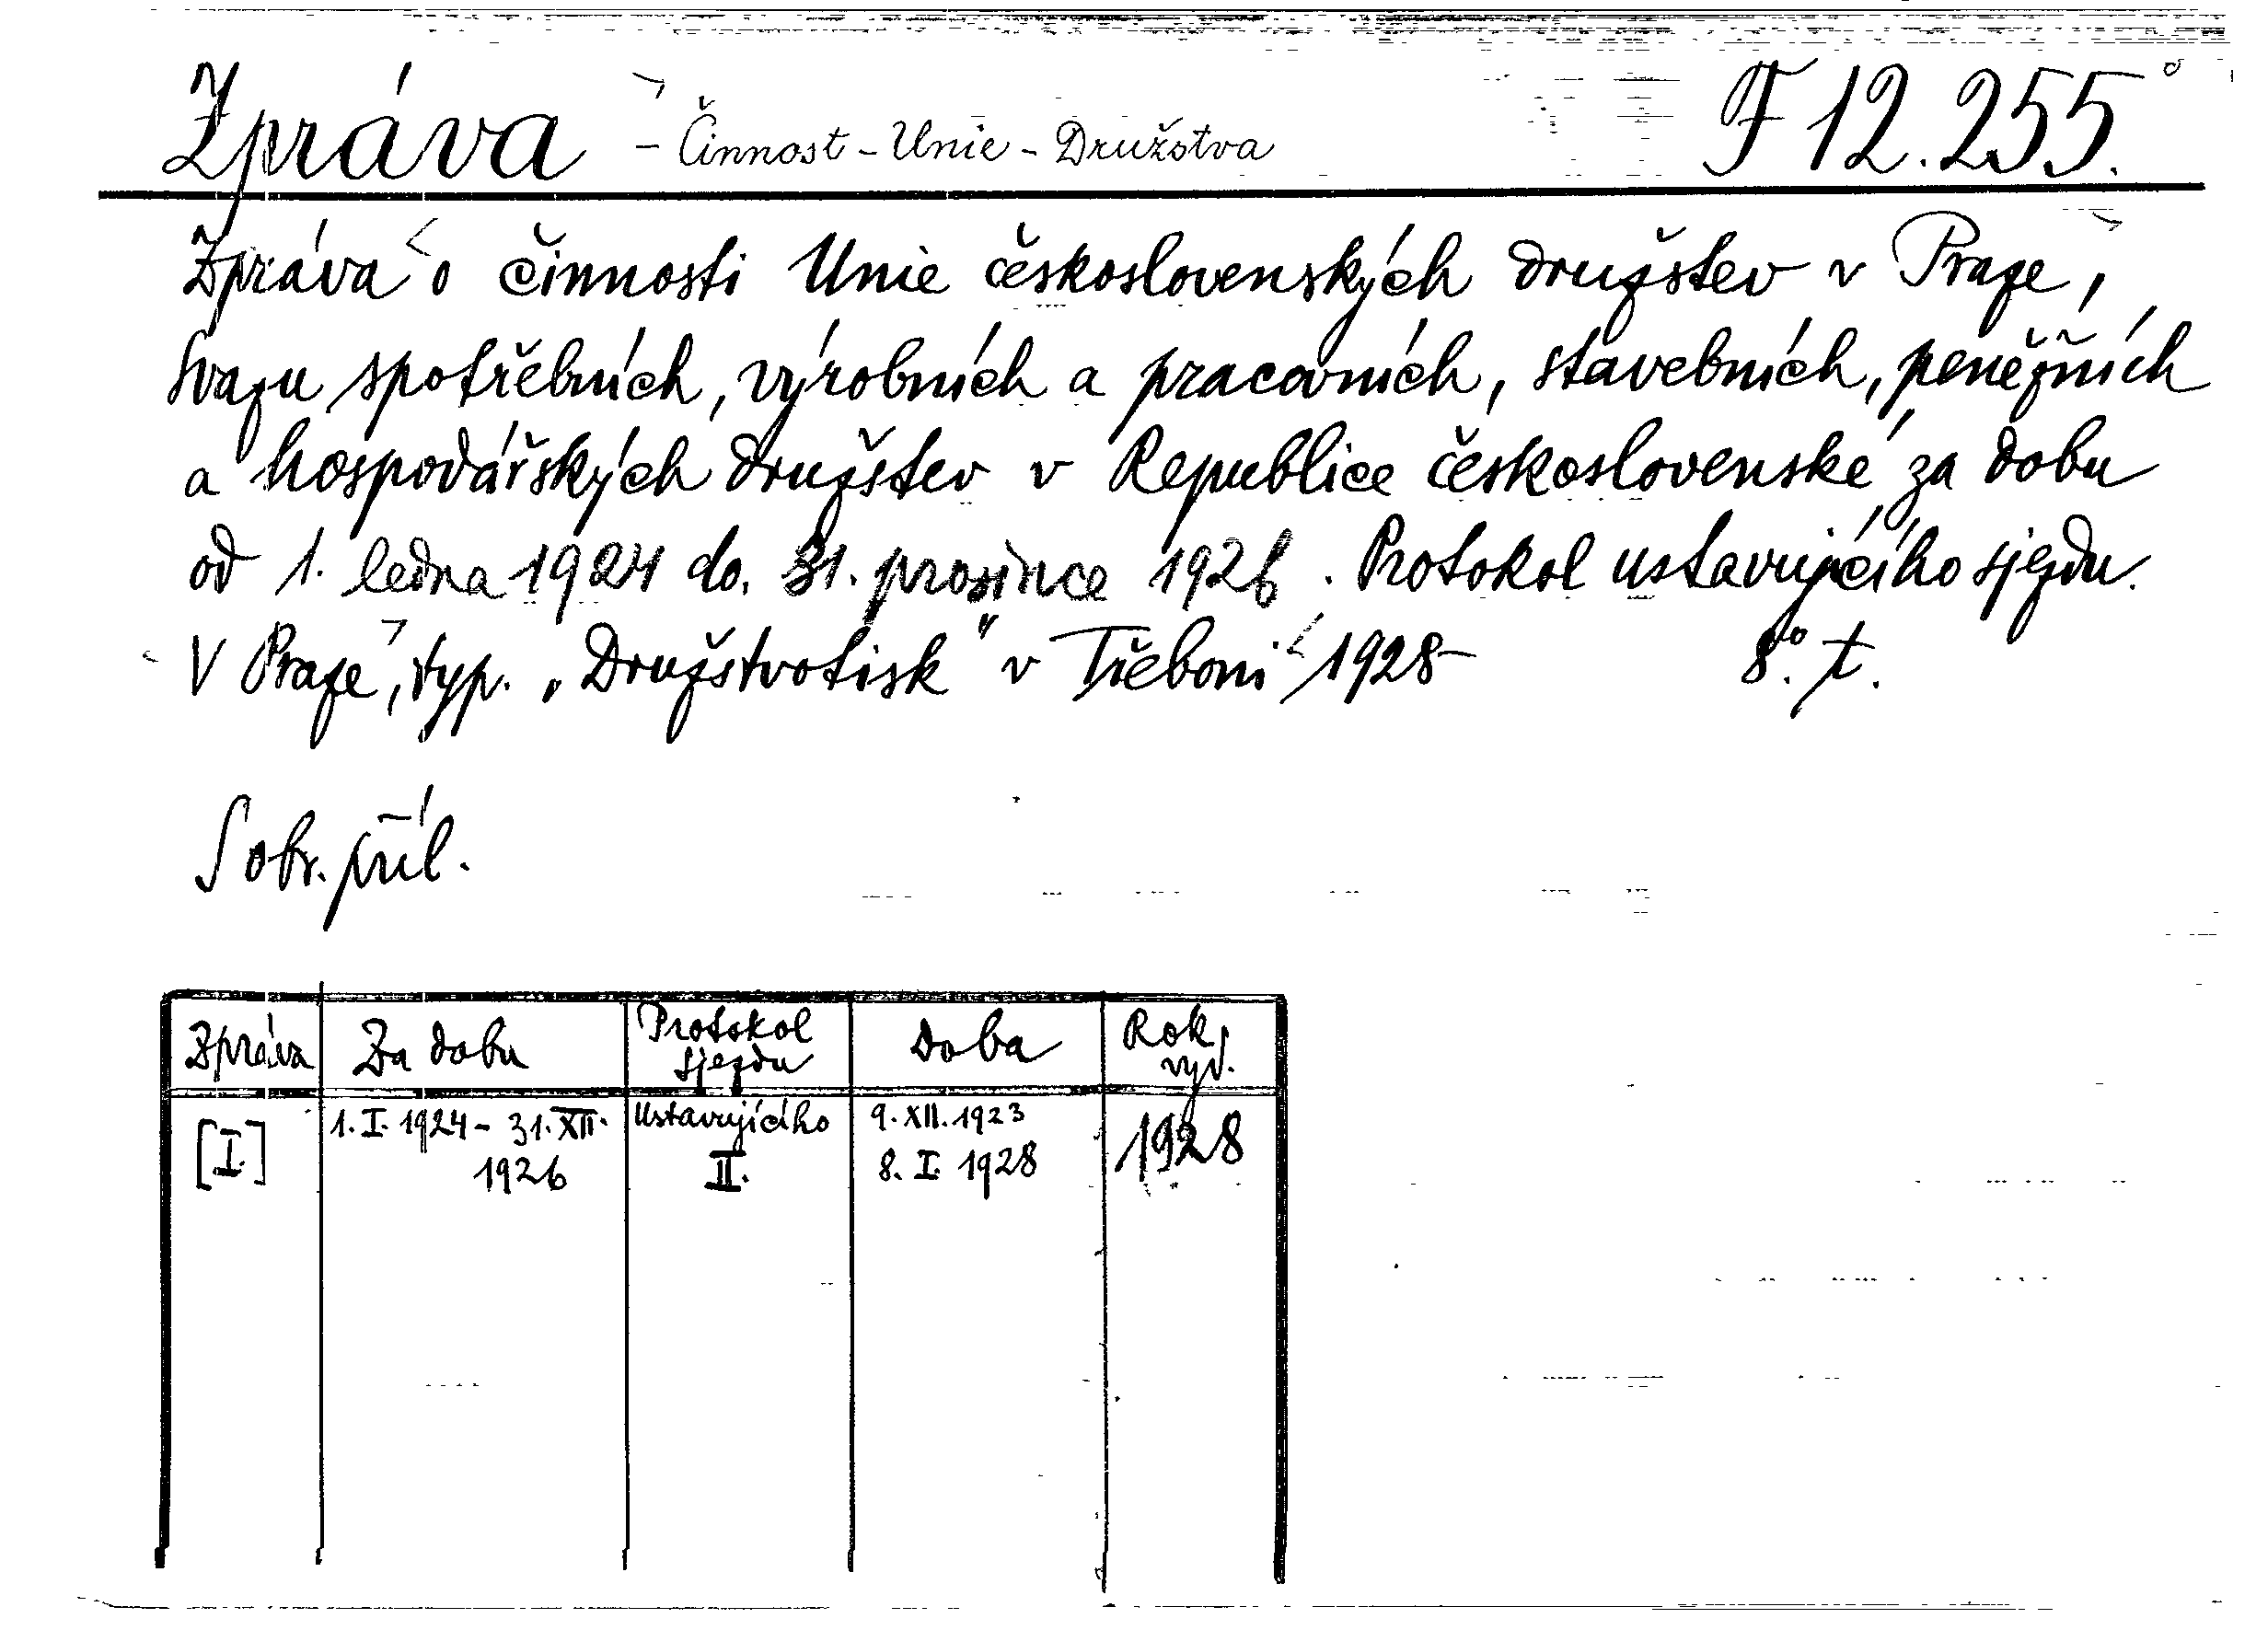 Zpráva - Činnost - Unie - Družstva F 12.255.
Zpráva o činnosti Unie československých družstev v Praze,
svazu spotřebních, výrobních a pracovních, stavebních, peněžních
a hospodářských družstev v Republice československé za dobu
od 1. ledna 1924 do. 31. prosince 1926. Protokol ustavujícího sjezdu.
V Praze, typ. „Družstvotisk" v Třeboni 1928- 8°. t.
S obr. příl.
Zpráva Za dobu Protokol sjezdu Doba Rok vyd.
[I.] 1. I. 1924 - 31. XII. 1926 Ustavujícího II. 9. XII. 1923 8. I. 1928 1928